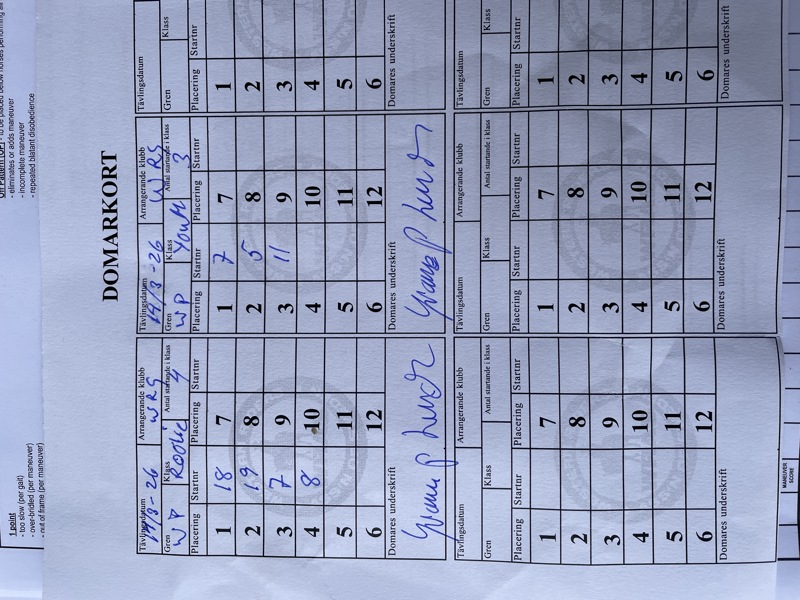 On Pattern (OP) - To be placed below horses performing all
- eliminates or adds maneuver
- incomplete maneuver
- repeated blatant disobedience
1 point
- too slow (per gait)
- over-bridled (per maneuver)
- out of frame (per maneuver)
DOMARKORT
Tävlingsdatum Arrangerande klubb
14/3-26 WRS
Gren Klass Antal startande i klass
WP Rookie 4
Placering Startnr Placering Startnr
1 18 7
2 19 8
3 7 9
4 8 10
5 11
6 12
Domares underskrift
Tävlingsdatum Arrangerande klubb
14/3-26 WRS
Gren Klass Antal startande i klass
WP Youth 3
Placering Startnr Placering Startnr
1 7 7
2 5 8
3 11 9
4 10
5 11
6 12
Domares underskrift
Tävlingsdatum
Gren Klass
Placering Startnr
1
2
3
4
5
6
Domares underskrift
Tävlingsdatum Arrangerande klubb
Gren Klass Antal startande i klass
Placering Startnr Placering Startnr
1 7
2 8
3 9
4 10
5 11
6 12
Domares underskrift
Tävlingsdatum Arrangerande klubb
Gren Klass Antal startande i klass
Placering Startnr Placering Startnr
1 7
2 8
3 9
4 10
5 11
6 12
Domares underskrift
Tävlingsdatum
Gren Klass
Placering Startnr
1
2
3
4
5
6
Domares underskrift
MANEUVER
SCORE